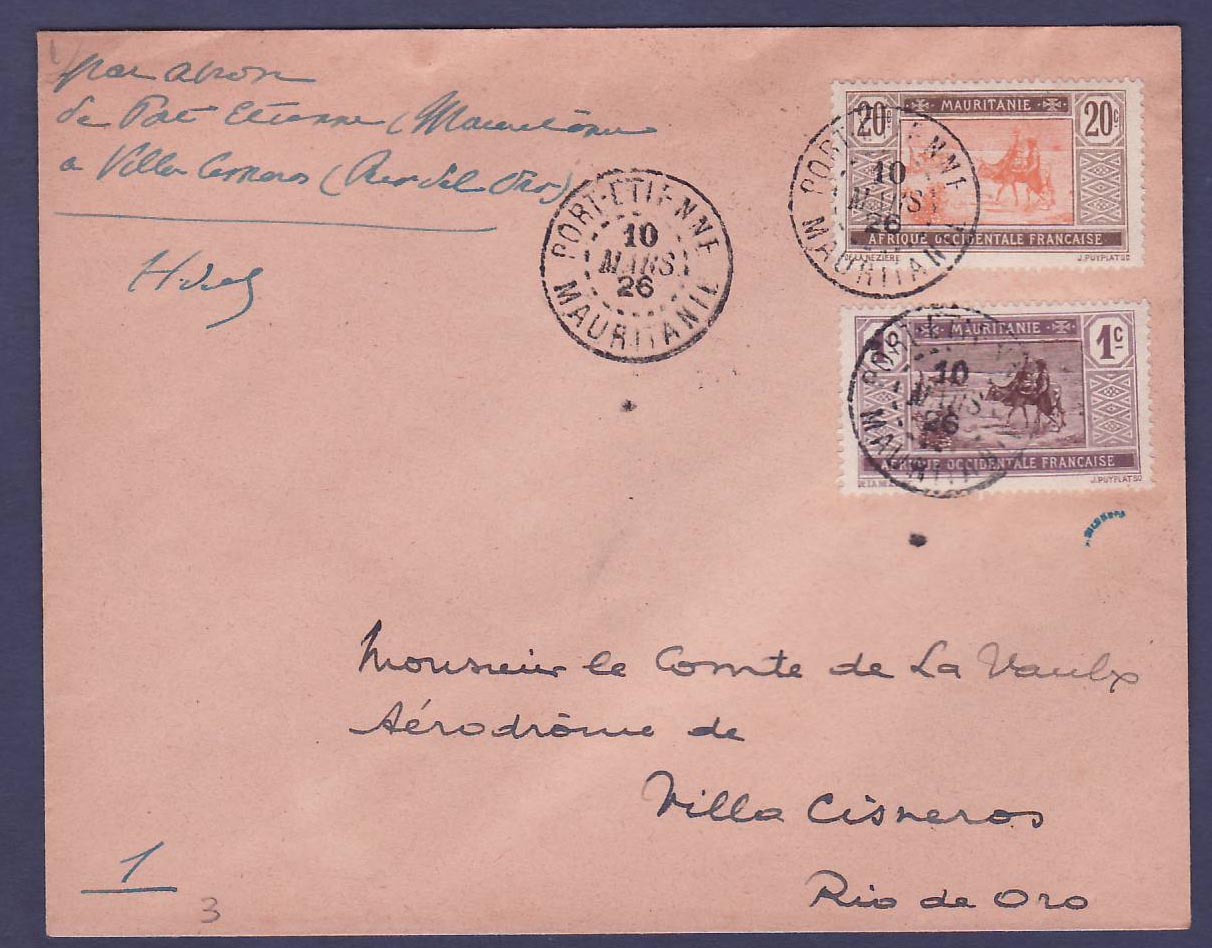 par avion
de Port Etienne (Mauritanie
a Villa Cisneros (Rio del Oro)
PORT-ETIENNE
10
MARS
26
MAURITANIE
20c MAURITANIE 20c
PORT-ETIENNE
10
MARS
26
MAURITANIE
AFRIQUE OCCIDENTALE FRANÇAISE
DE LA NEZIÈRE J. PUYPLAT SC
MAURITANIE 1c
PORT-ETIENNE
10
MARS
26
MAURITANIE
AFRIQUE OCCIDENTALE FRANÇAISE
DE LA NEZIÈRE J. PUYPLAT SC
Monsieur le Comte de La Vaulx
Aérodrôme de
Villa Cisneros
Rio de Oro
1
3